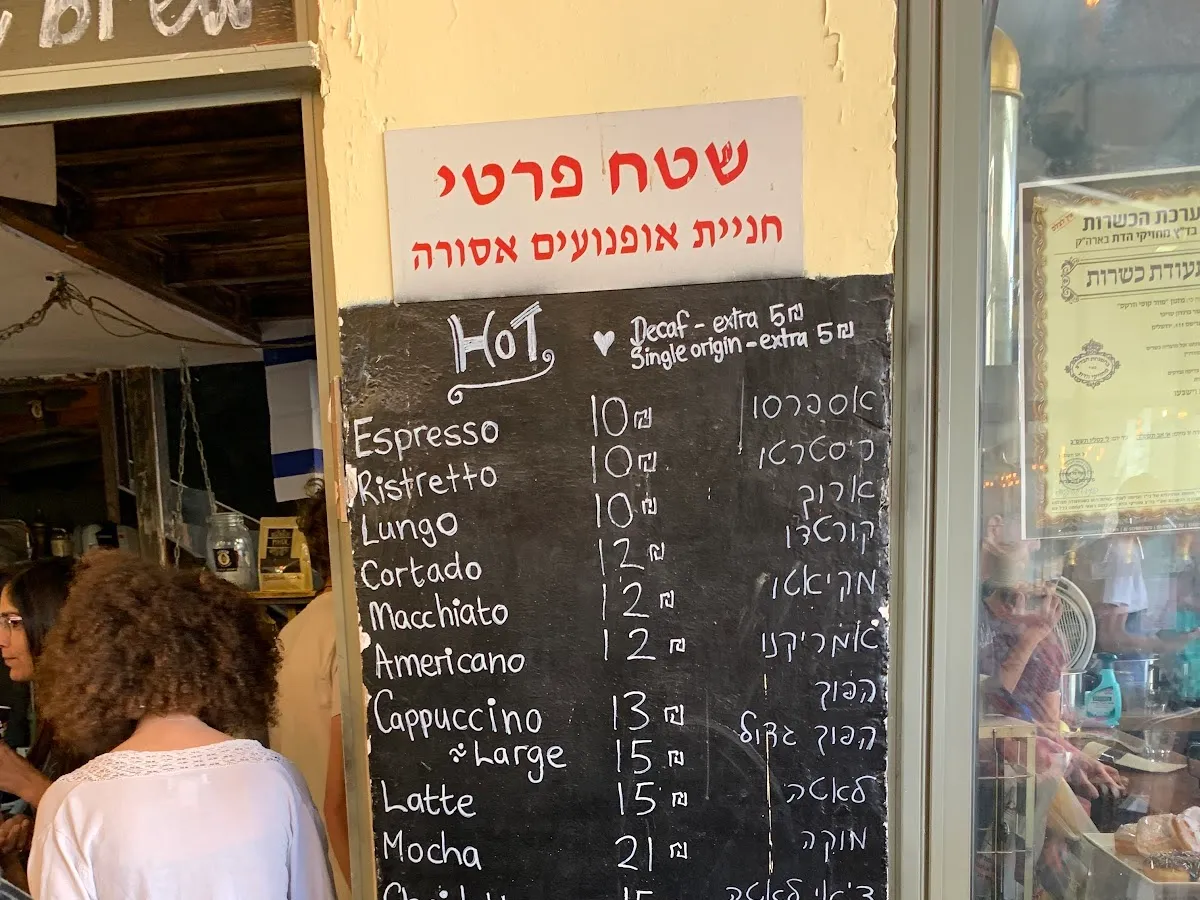 Brew
שטח פרטי
חניית אופנועים אסורה
HOT
Decaf - extra 5₪
Single origin - extra 5₪
Espresso 10₪ אספרסו
Ristretto 10₪ ריסטרטו
Lungo 10₪ ארוך
Cortado 12₪ קורטדו
Macchiato 12₪ מקיאטו
Americano 12₪ אמריקנו
Cappuccino 13₪ הפוך
Large 15₪ הפוך גדול
Latte 15₪ לאטה
Mocha 21₪ מוקה
15 צ'אי לאטה
מערכת הכשרות
בד"ץ מחזיקי הדת בארה"ק
תעודת כשרות